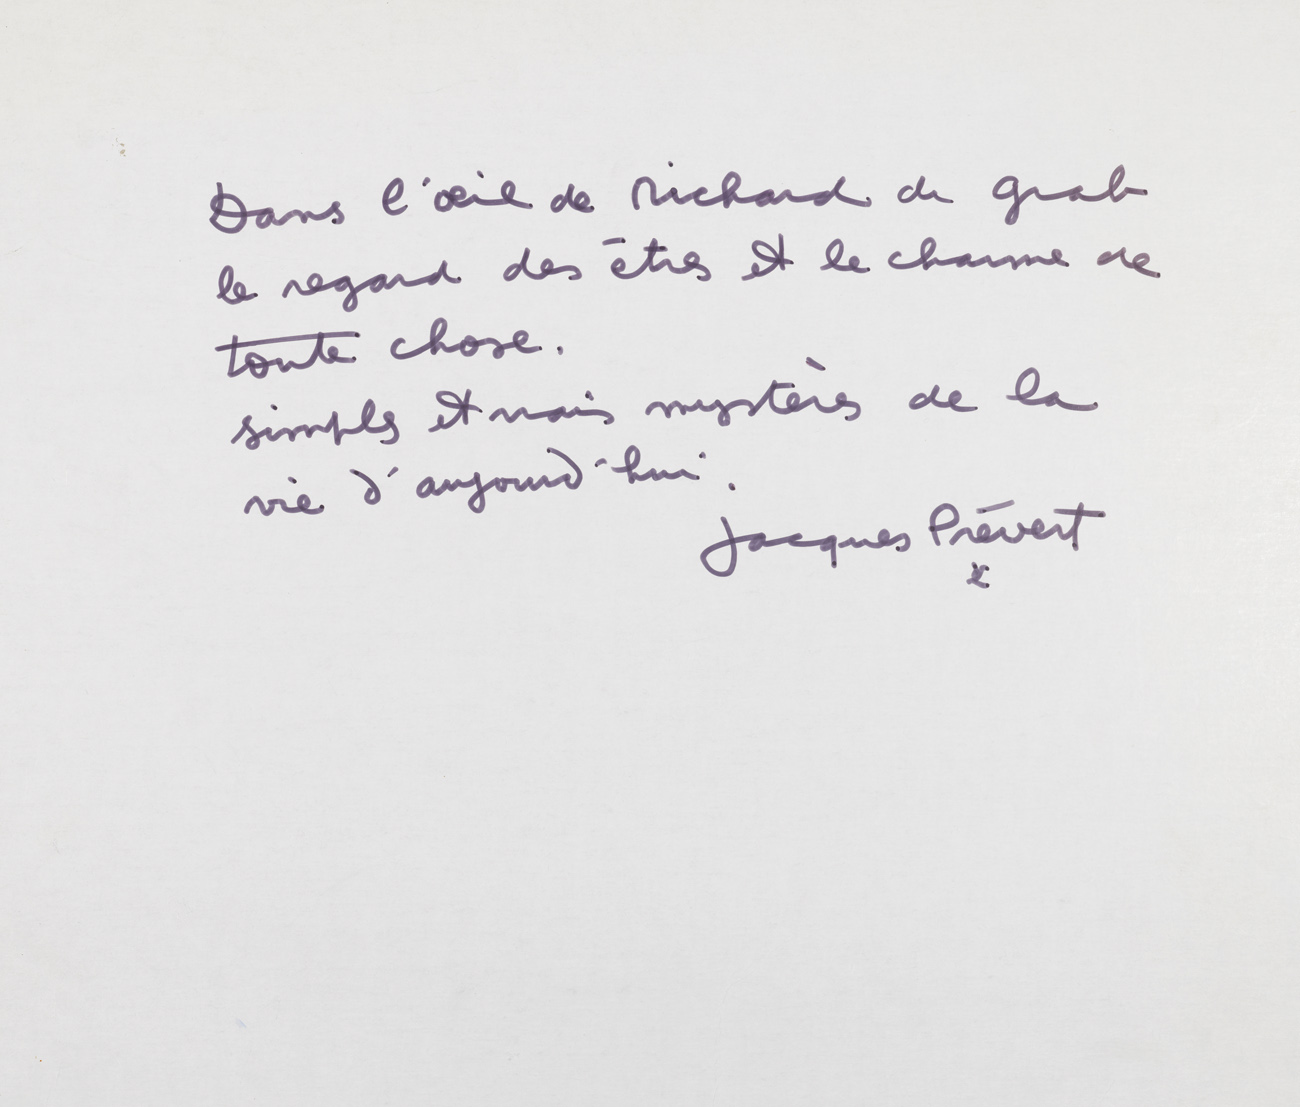 Dans l'œil de Richard de grab
le regard des êtres et le charme de
toute chose.
simples et vrais mystères de la
vie d'aujourd'hui.
Jacques Prévert